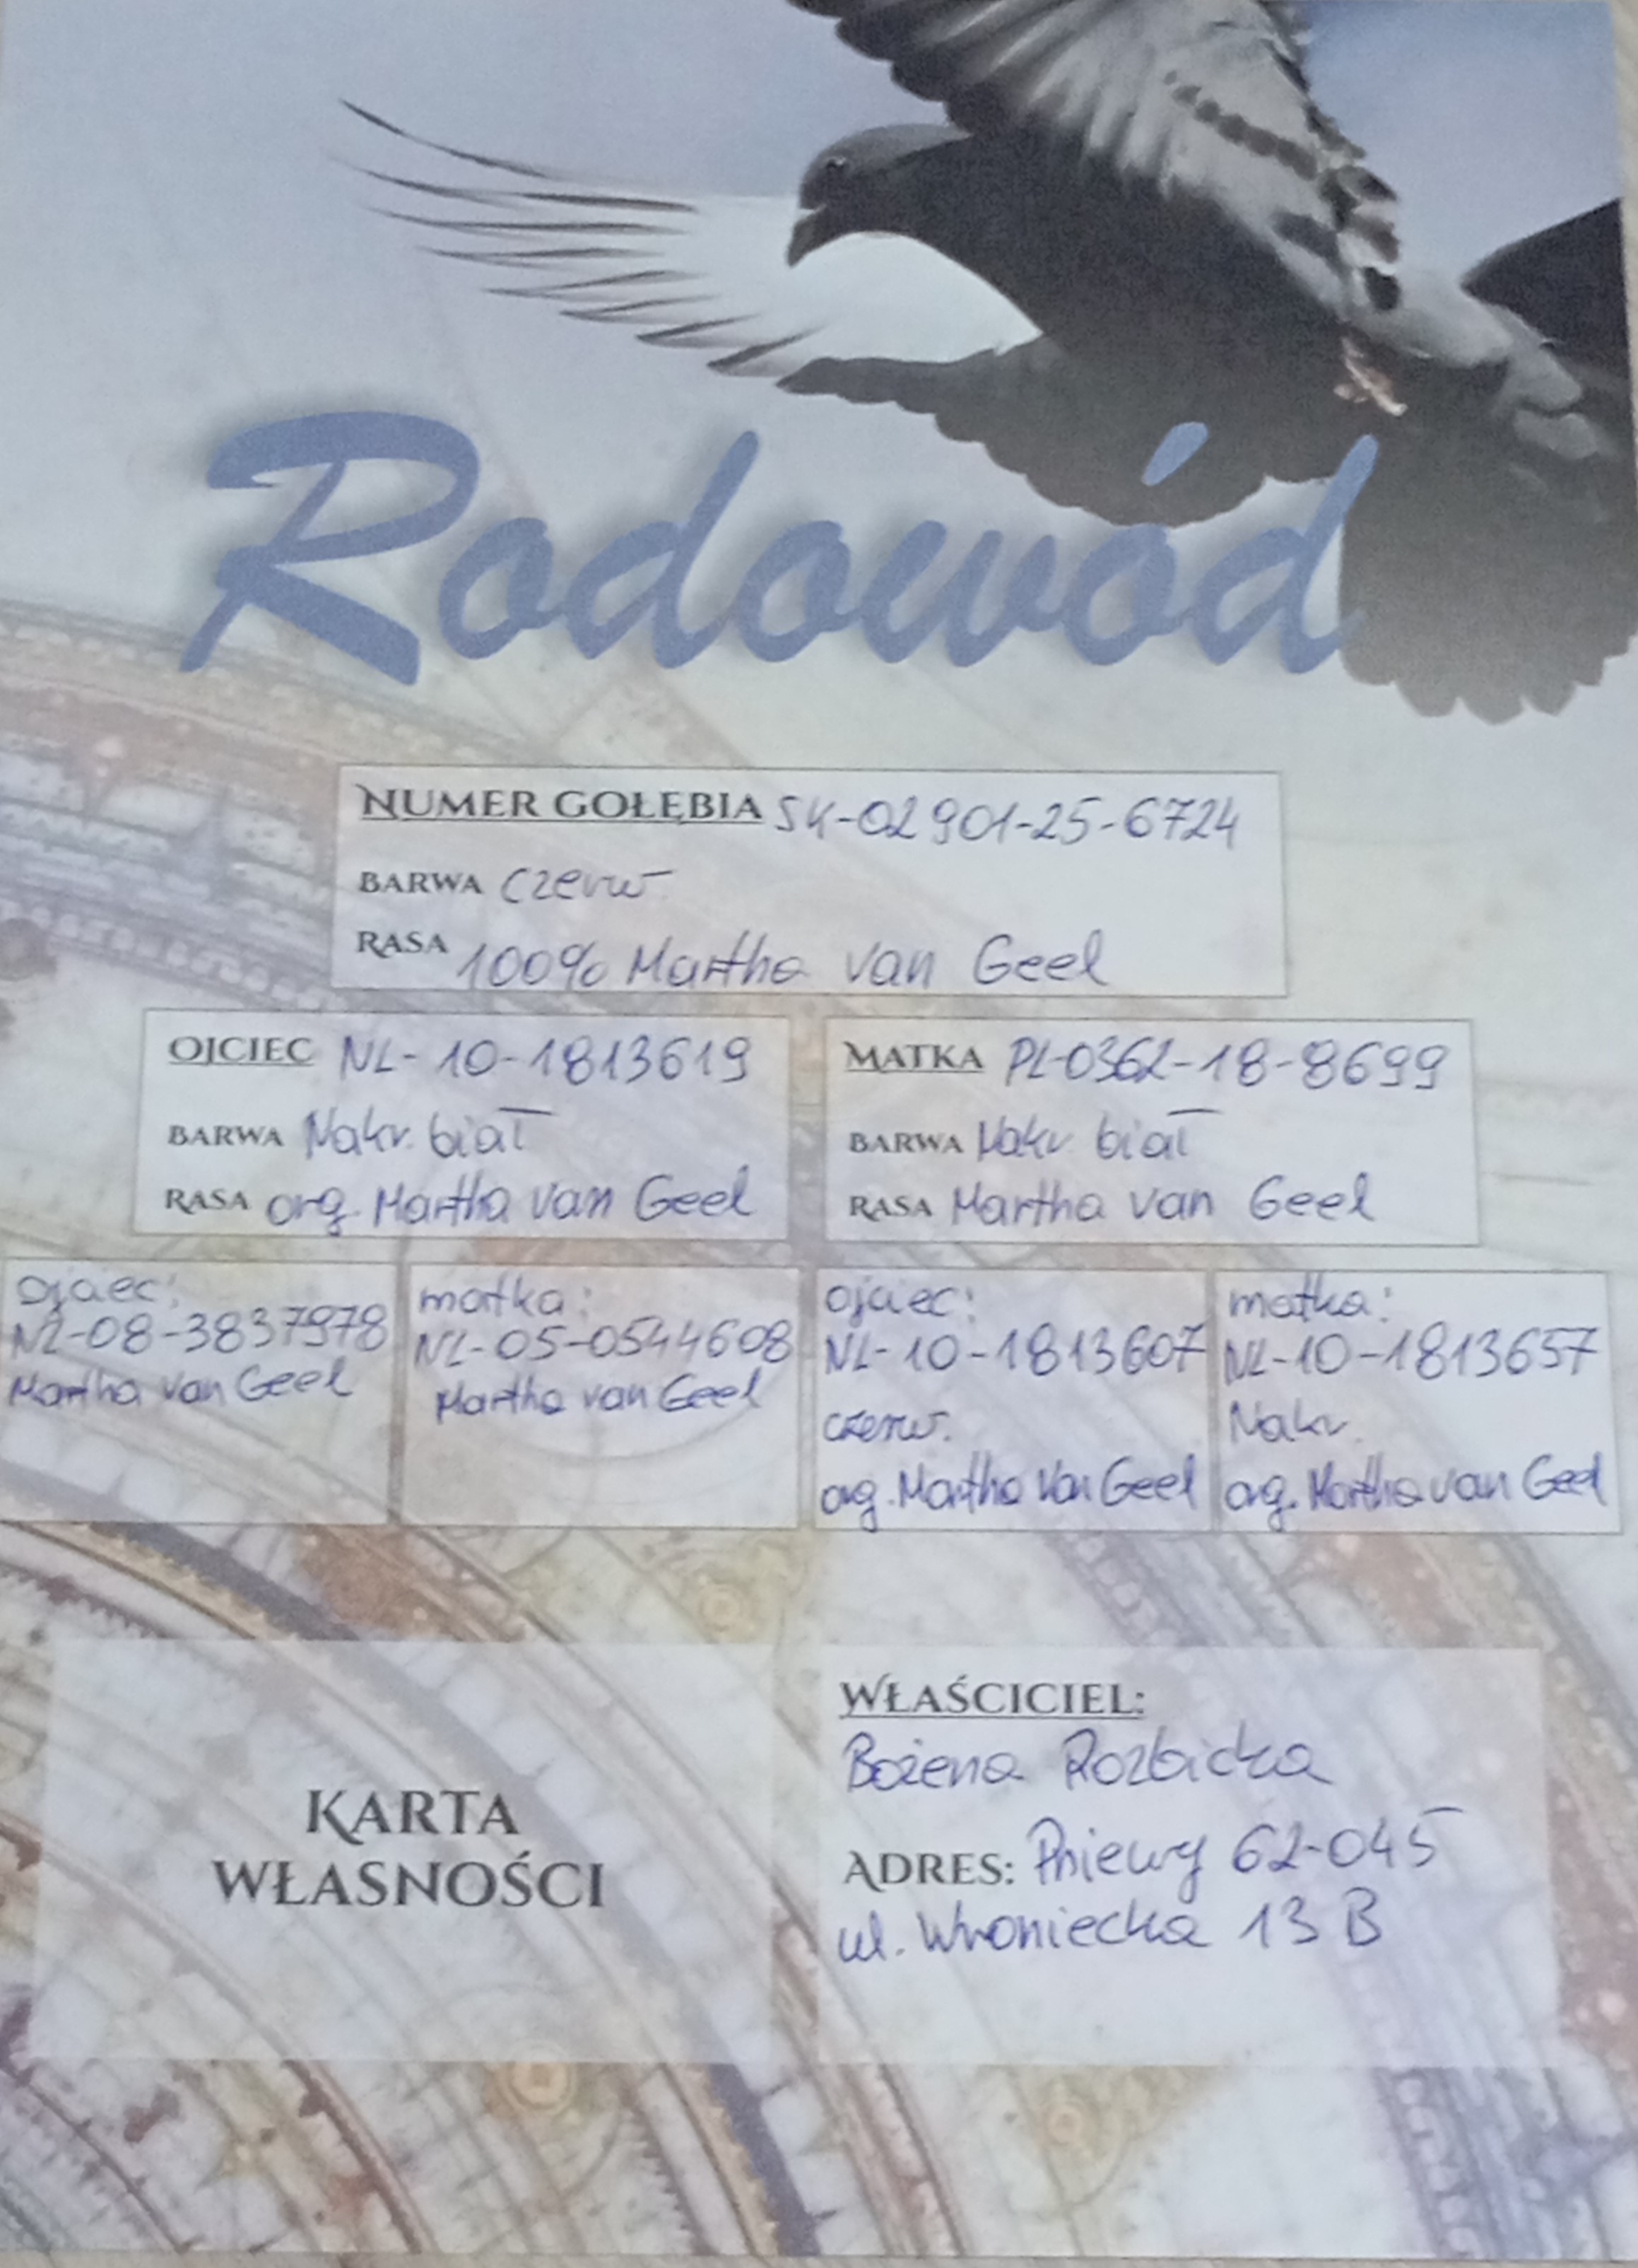 Rodowód
NUMER GOŁĘBIA SK-02901-25-6724
BARWA czerw.
RASA 100% Martha van Geel
OJCIEC NL-10-1813619
BARWA Nakr. biał
RASA org. Martha van Geel
MATKA PL-0362-18-8699
BARWA Nakr. biał
RASA Martha van Geel
ojciec:
NL-08-3837978
Martha van Geel
matka:
NL-05-0544608
Martha van Geel
ojciec:
NL-10-1813607
czerw.
org. Martha van Geel
matka:
NL-10-1813657
Nakr.
org. Martha van Geel
KARTA
WŁASNOŚCI
WŁAŚCICIEL:
Bożena Rozbicka
ADRES: Pniewy 62-045
ul. Wroniecka 13 B